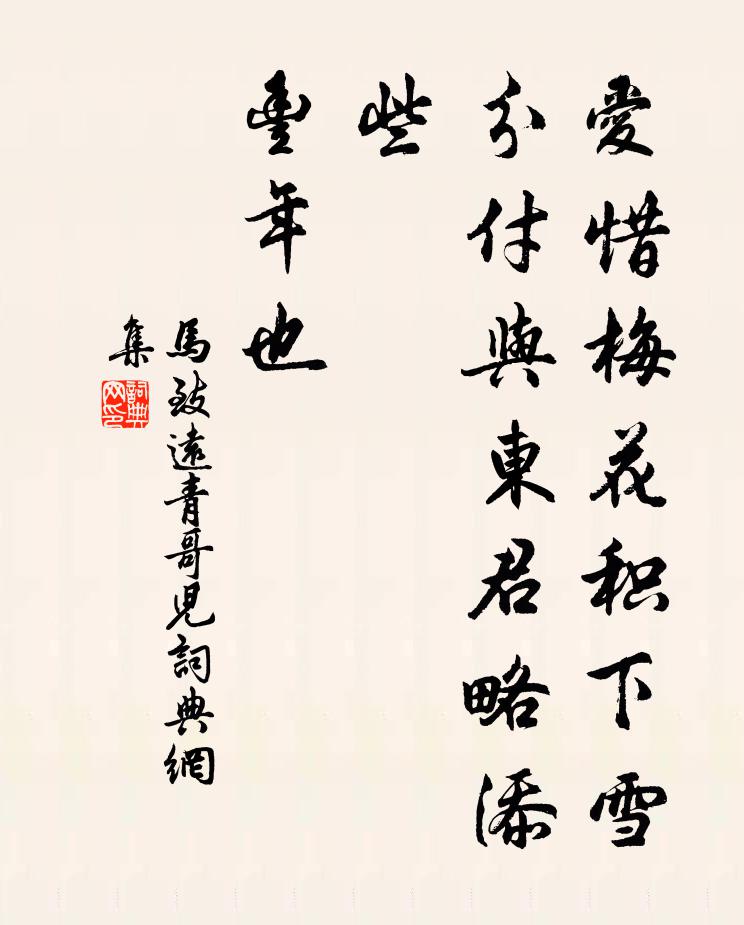 愛惜梅花积下雪
分付與東君略添
些
豊年也
馬致遠青哥児詞典網
集
詞典
网印